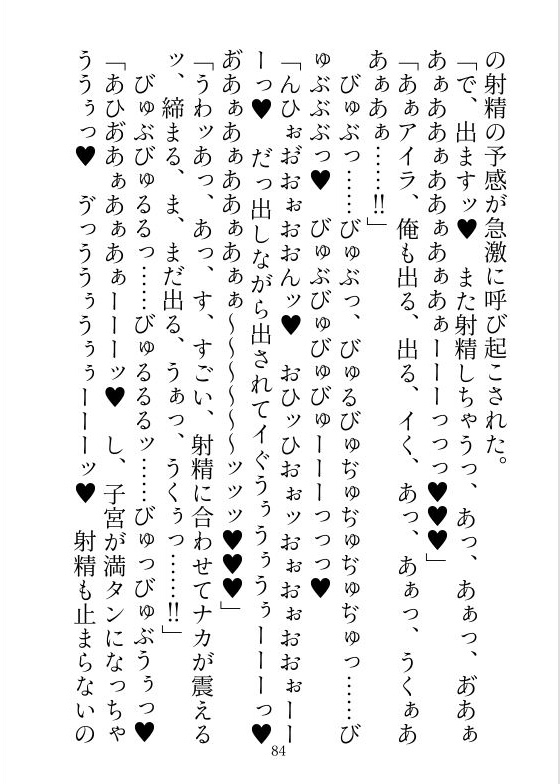 の射精の予感が急激に呼び起こされた。
「で、出ますッ♥　また射精しちゃうっ、あっ、あぁっ、あ゛あぁ
あぁああぁああぁあぁあぁーーーっっっ♥♥♥」
「あぁアイラ、俺も出る、出る、イく、あっ、あぁっ、うくぁあ
あぁあぁ……‼」
　びゅぶっ……びゅぶっ、びゅるびゅぢゅぢゅぢゅぢゅっ……び
ゅぶぶぶっ♥　びゅぶびゅびゅびゅーーーっっっ♥
「んひぉお゛おぉおおんッ♥　おひッひおぉッおぉおぉおおぉーー
ーっ♥　だっ出しながら出されてイぐうぅうぅうぅーーーっ♥
あ゛あぁあぁああぁあぁぁ〜〜〜〜〜〜ッッッ♥♥♥」
「うわッあっ、あっ、す、すごい、射精に合わせてナカが震える
ッ、締まる、ま、まだ出る、うぁっ、うくぅっ……‼」
　びゅぶびゅるるっ……びゅるるるッ……びゅっびゅぶうぅっ♥
「あひあ゛あぁあぁあぁーーーッ♥　し、子宮が満タンになっちゃ
ううぅっ♥　う゛っううぅうぅぅーーーッ♥　射精も止まらないの
84